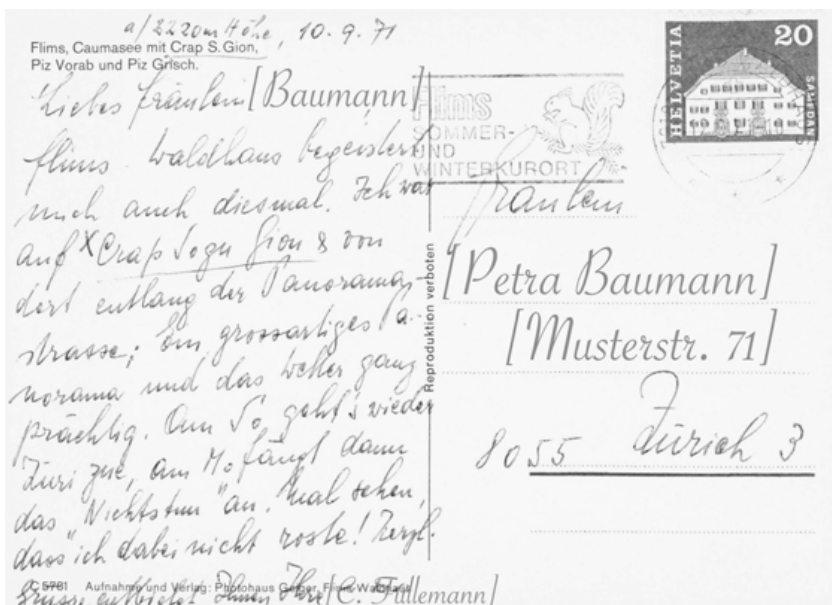 a/2220m Höhe, 10.9.71
Flims, Caumasee mit Crap S. Gion,
Piz Vorab und Piz Grisch.
Liebes Fräulein [Baumann]
Flims-Waldhaus begeistert
mich auch diesmal. Ich war
auf x Crap Sogn Gion & von
dort entlang der Panorama-
strasse; Ein grossartiges Pa-
norama und das Wetter ganz
prächtig. Am So geht's wieder
Züri zue, am Mo fängt dann
das "Nichtstun" an. Mal sehen,
dass ich dabei nicht roste! Herzl.
Grüsse entbietet Ihnen Ihre [C. Füllemann]
C 5781 Aufnahme und Verlag: Photohaus Geiger, Flims-Waldhaus
Reproduktion verboten
Flims
SOMMER-
UND
WINTERKURORT
HELVETIA
20
SAMEDAN
Fräulein
[Petra Baumann]
[Musterstr. 71]
8055 Zürich 3